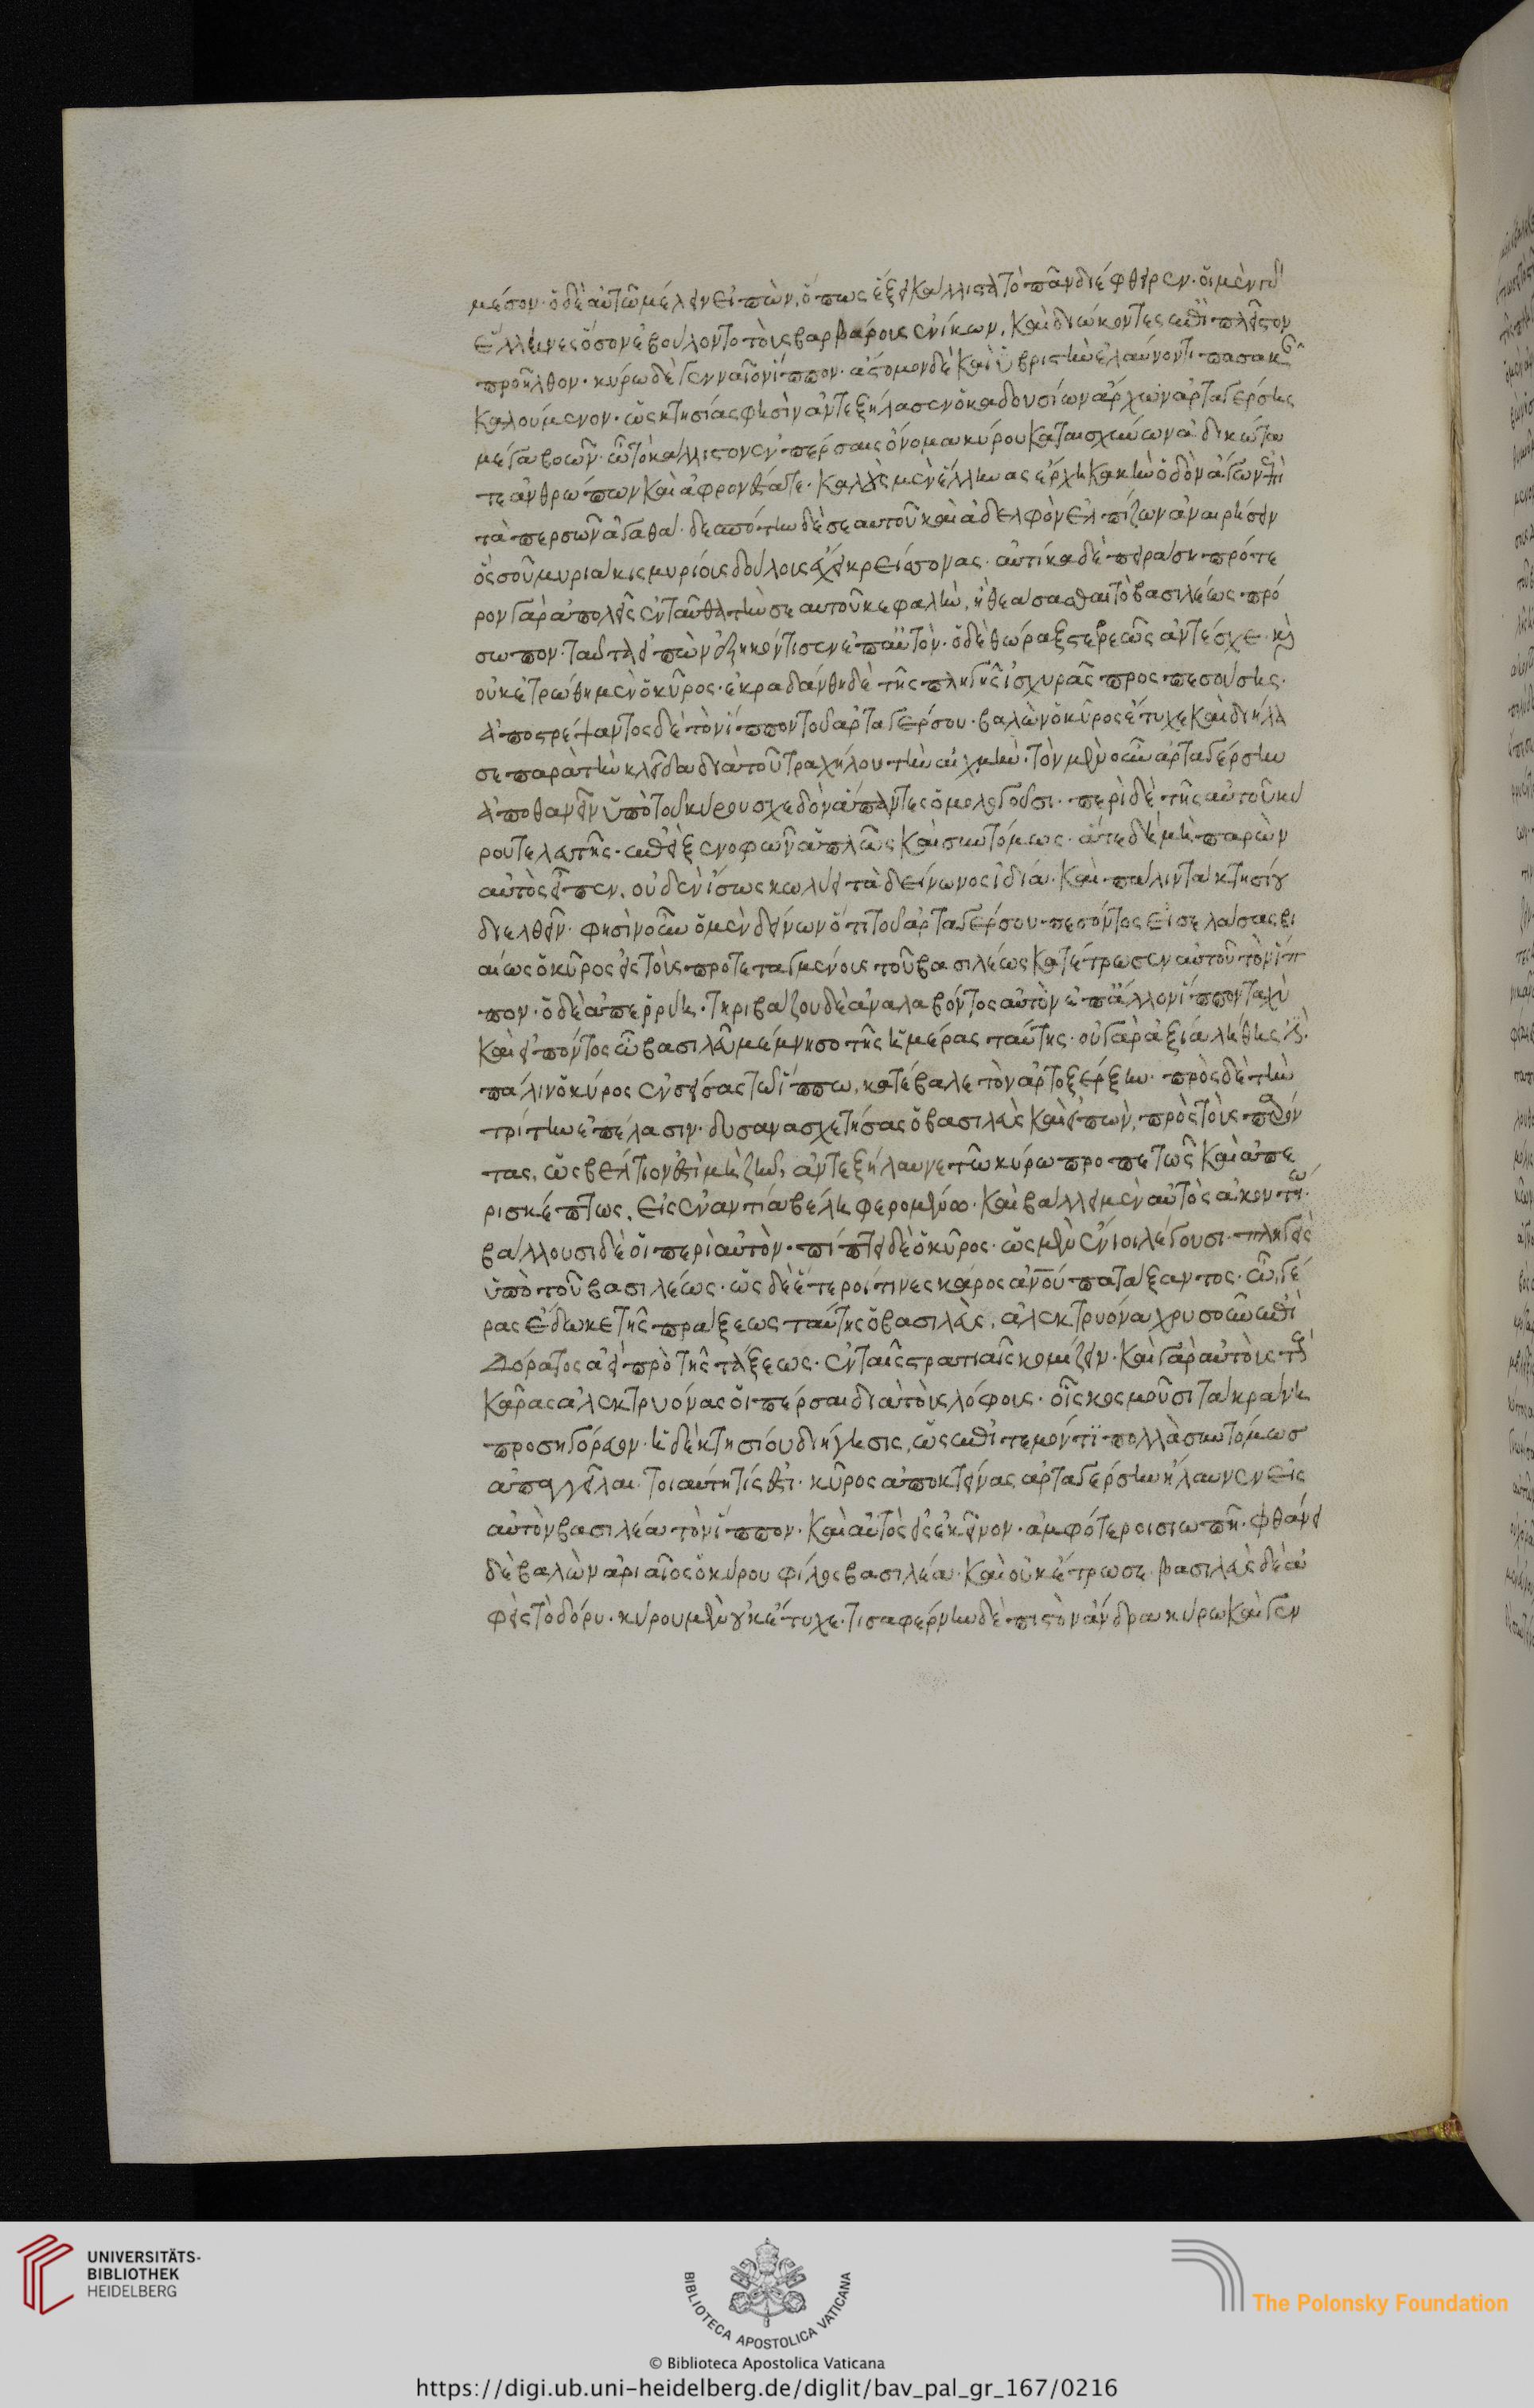 μέσον· ὁ δὲ αὐτῷ μέλειν εἰπὼν, ὅπως ἕξει κάλλιστα τὸ πᾶν διέφθειρεν· οἱ μὲν γὰρ
ἕλληνες ὅσον ἐβούλοντο τοὺς βαρβάρους ἐνίκων, καὶ διώκοντες ἐπὶ πλεῖστον
προῆλθον· κύρῳ δὲ γενναῖον ἵππον· ἄστομον δὲ καὶ ὑβριστὴν ἐλαύνοντι πασακᾶν
καλούμενον· ὡς κτησίας φησὶν ἀντεξήλασεν ὁ καδουσίων ἄρχων ἀρταγέρσης
μέγα βοῶν· ὦ τὸ κάλλιστον ἐν πέρσαις ὄνομα κύρου καταισχύνων ἀδικώτα
τε ἀνθρώπων καὶ ἀφρονέστατε· κακοὺς μὲν ἕλληνας ἔρχη κακὴν ὁδὸν ἄγων ἐπὶ
τὰ περσῶν ἀγαθά· δεσπότην δὲ σεαυτοῦ καὶ ἀδελφὸν ἐλπίζων ἀναιρήσειν
ὃς σοῦ μυριάκις μυρίους δούλους ἔχει κρείσσονας· αὐτίκα δὲ πειράση· πρότε
ρον γὰρ ἀπολεῖς ἐνταῦθα τὴν σεαυτοῦ κεφαλὴν, ἢ θεάσασθαι τὸ βασιλέως πρό
σωπον· ταῦτα εἰπὼν ἐξηκόντισεν ἐπ' αὐτὸν· ὁ δὲ θώραξ στερεῶς ἀντέσχε· καὶ
οὐκ ἐτρώθη μὲν ὁ κῦρος· ἐκραδάνθη δὲ τῆς πληγῆς ἰσχυρᾶς προσπεσούσης·
ἀποστρέψαντος δὲ τὸν ἵππον τοῦ ἀρταγέρσου· βαλὼν ὁ κῦρος ἔτυχε καὶ διήλα
σε παρὰ τὴν κλεῖδα διὰ τοῦ τραχήλου τὴν αἰχμὴν· τὸν μὲν οὖν ἀρταγέρσην
ἀποθανεῖν ὑπὸ τοῦ κύρου σχεδὸν ἅπαντες ὁμολογοῦσι· περὶ δὲ τῆς αὐτοῦ κύ
ρου τελευτῆς· ἐπεὶ ξενοφῶν ἁπλῶς καὶ συντόμως· ἅτε δὴ μὴ παρὼν
αὐτὸς εἶπεν, οὐδὲν ἴσως κωλύει τὰ δείνωνος ἰδίᾳ· καὶ πάλιν τὰ κτησίου
διελθεῖν· φησὶν οὖν ὁ μὲν δείνων ὅτι τοῦ ἀρταγέρσου πεσόντος εἰσελάσας βι
αίως ὁ κῦρος εἰς τοὺς προτεταγμένους τοῦ βασιλέως κατέτρωσεν αὐτοῦ τὸν ἵπ
πον· ὁ δὲ ἀπερρύη· τηριβάζου δὲ ἀναλαβόντος αὐτὸν ἐπ' ἄλλον ἵππον ταχὺ
καὶ εἰπόντος ὦ βασιλεῦ μέμνησο τῆς ἡμέρας ταύτης· οὐ γὰρ ἀξία λήθης ἐστὶ·
πάλιν ὁ κύρος ἐνσείσας τῷ ἵππῳ, κατέβαλε τὸν ἀρτοξέρξην· πρὸς δὲ τὴν
τρίτην ἐπέλασιν· δυσανασχετήσας ὁ βασιλεὺς καὶ εἰπὼν, πρὸς τοὺς παρόν
τας, ὡς βέλτιόν ἐστι μὴ ζῆν, ἀντεξήλαυνε τῷ κύρῳ προπετῶς καὶ ἀπε
ρισκέπτως, εἰς ἐναντία βέλη φερομένῳ· καὶ βάλλει μὲν αὐτὸς ἀκοντίῳ·
βάλλουσι δὲ οἱ περὶ αὐτὸν· πίπτει δὲ ὁ κῦρος· ὡς μὲν ἔνιοι λέγουσι πληγεὶς
ὑπὸ τοῦ βασιλέως· ὡς δὲ ἕτεροί τινες κάρος ἀνοῦ πατάξαντος· ᾧ γέ
ρας ἔδωκε τῆς πράξεως ταύτης ὁ βασιλεὺς, ἀλεκτρυόνα χρυσοῦν ἐπὶ
δόρατος ἀεὶ πρὸ τῆς τάξεως· ἐν ταῖς στρατιαῖς κομίζειν· καὶ γὰρ αὐτοὺς τοὺς
κᾶρας ἀλεκτρυόνας οἱ πέρσαι διὰ τοὺς λόφους· οἷς κοσμοῦσι τὰ κράνη
προσηγόρευον· ἡ δὲ κτησίου διήγησις, ὡς ἐπιτεμόντι πολλὰ συντόμως
ἀπαγγεῖλαι· τοιαύτη τίς ἐστι· κῦρος ἀποκτείνας ἀρταγέρσην ἤλαυνεν εἰς
αὐτὸν βασιλέα τὸν ἵππον· καὶ αὐτὸς εἰς ἐκεῖνον· ἀμφότεροι σιωπῇ· φθάνει
δὲ βαλὼν ἀριαῖος ὁ κύρου φίλος βασιλέα· καὶ οὐκ ἔτρωσε· βασιλεὺς δὲ ἀ
φεὶς τὸ δόρυ· κύρου μὲν οὐκ ἔτυχε· τισαφέρνην δὲ πιστὸν ἄνδρα κύρῳ καὶ γεν
UNIVERSITÄTS-
BIBLIOTHEK
HEIDELBERG
BIBLIOTECA APOSTOLICA VATICANA
The Polonsky Foundation
© Biblioteca Apostolica Vaticana
https://digi.ub.uni-heidelberg.de/diglit/bav_pal_gr_167/0216